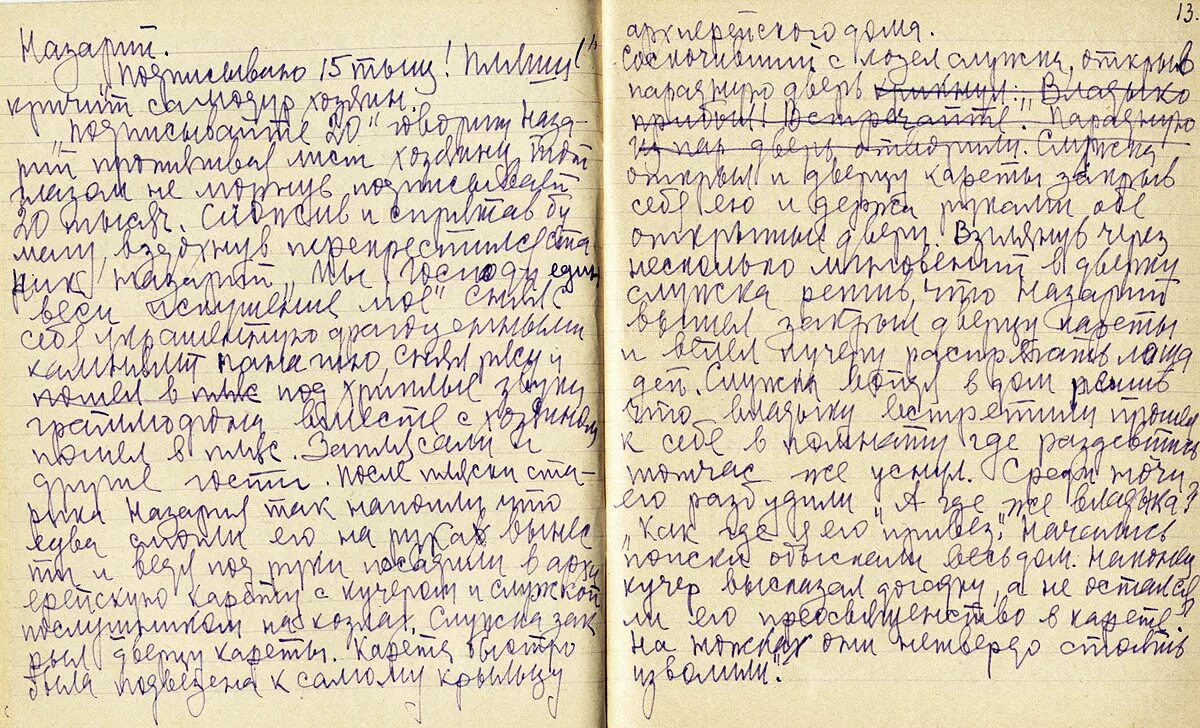 Назарий.
"Подписываю 15 тыщ! Пляши!"
кричит самодур хозяин.
"Подписывайте 20" говорит Наза-
рий протягивая лист хозяину. Тот
глазом не моргнув подписывает
20 тысяч. Сложив и спрятав бу
магу, вздохнув перекрестился ста
рик Назарий "Ты Господи един
веси искушение мое" снял с
себя украшенную драгоценными
камнями панагию, снял рясу и
пошел в пляс под хриплые звуки
граммофона вместе с хозяином
пошел в пляс. Заплясали и
другие гости. После пляски ста-
рика Назария так напоили, что
едва смогли его на руках вынес
ти и ведя под руки посадили в архи
ерейскую карету с кучером и служкой
послушником на козлах. Служка зак
рыл дверцу кареты. Карета быстро
была подвезена к самому крыльцу
13.
архиерейского дома.
Соскочивший с козел служка, открыв
парадную дверь крикнул: "Владыко
прибыл! Встречайте". Парадную
дверь отворили. Служка
открыл и дверцу кареты закрыв
себя ею и держа руками обе
открытые двери. Взглянув через
несколько мгновений в дверку
служка решив, что Назарий
вышел закрыл дверцу кареты
и велел кучеру распрягать лоша
дей. Служка войдя в дом решив
что владыку встретили прошел
к себе в комнату где раздевшись
тотчас же уснул. Среди ночи
его разбудили "А где же владыка?"
"Как где я его привез". Начались
поиски обыскали весь дом. Наконец
кучер высказал догадку "а не остался
ли его преосвященство в карете?
На ножках они нетвердо стоять
изволили".